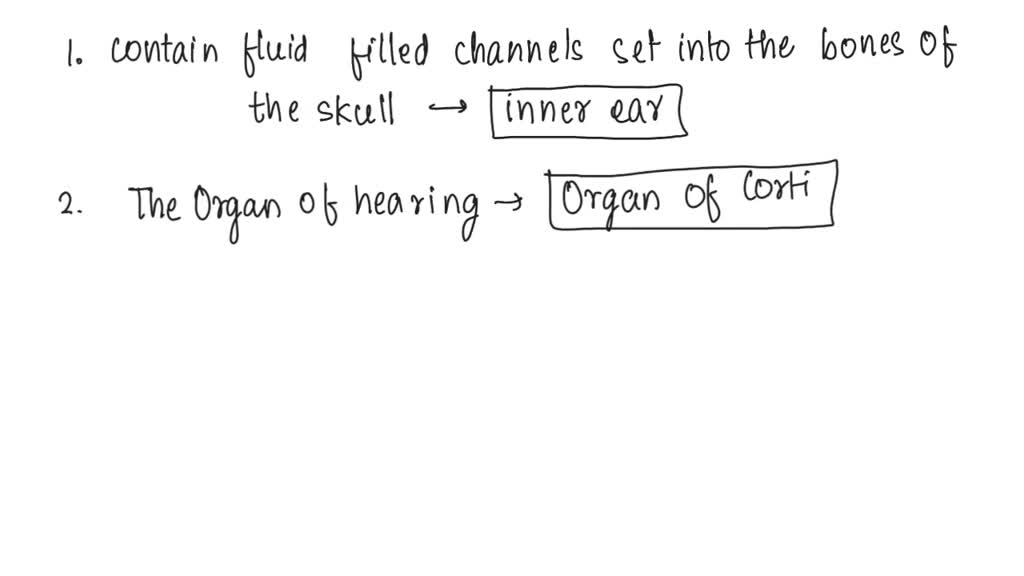 1. contain fluid filled channels set into the bones of
the skull → inner ear
2. The Organ of hearing → Organ of Corti